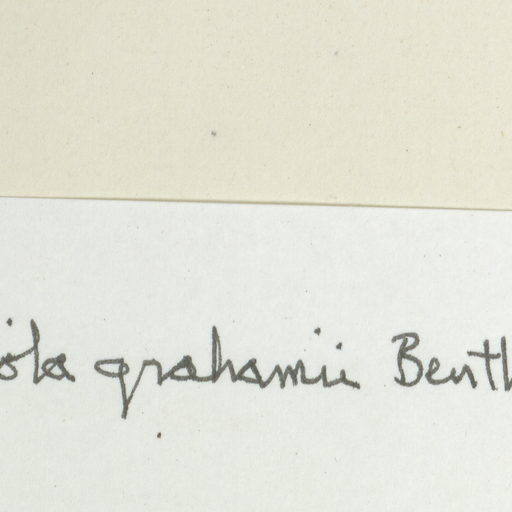 iola grahamii Benth